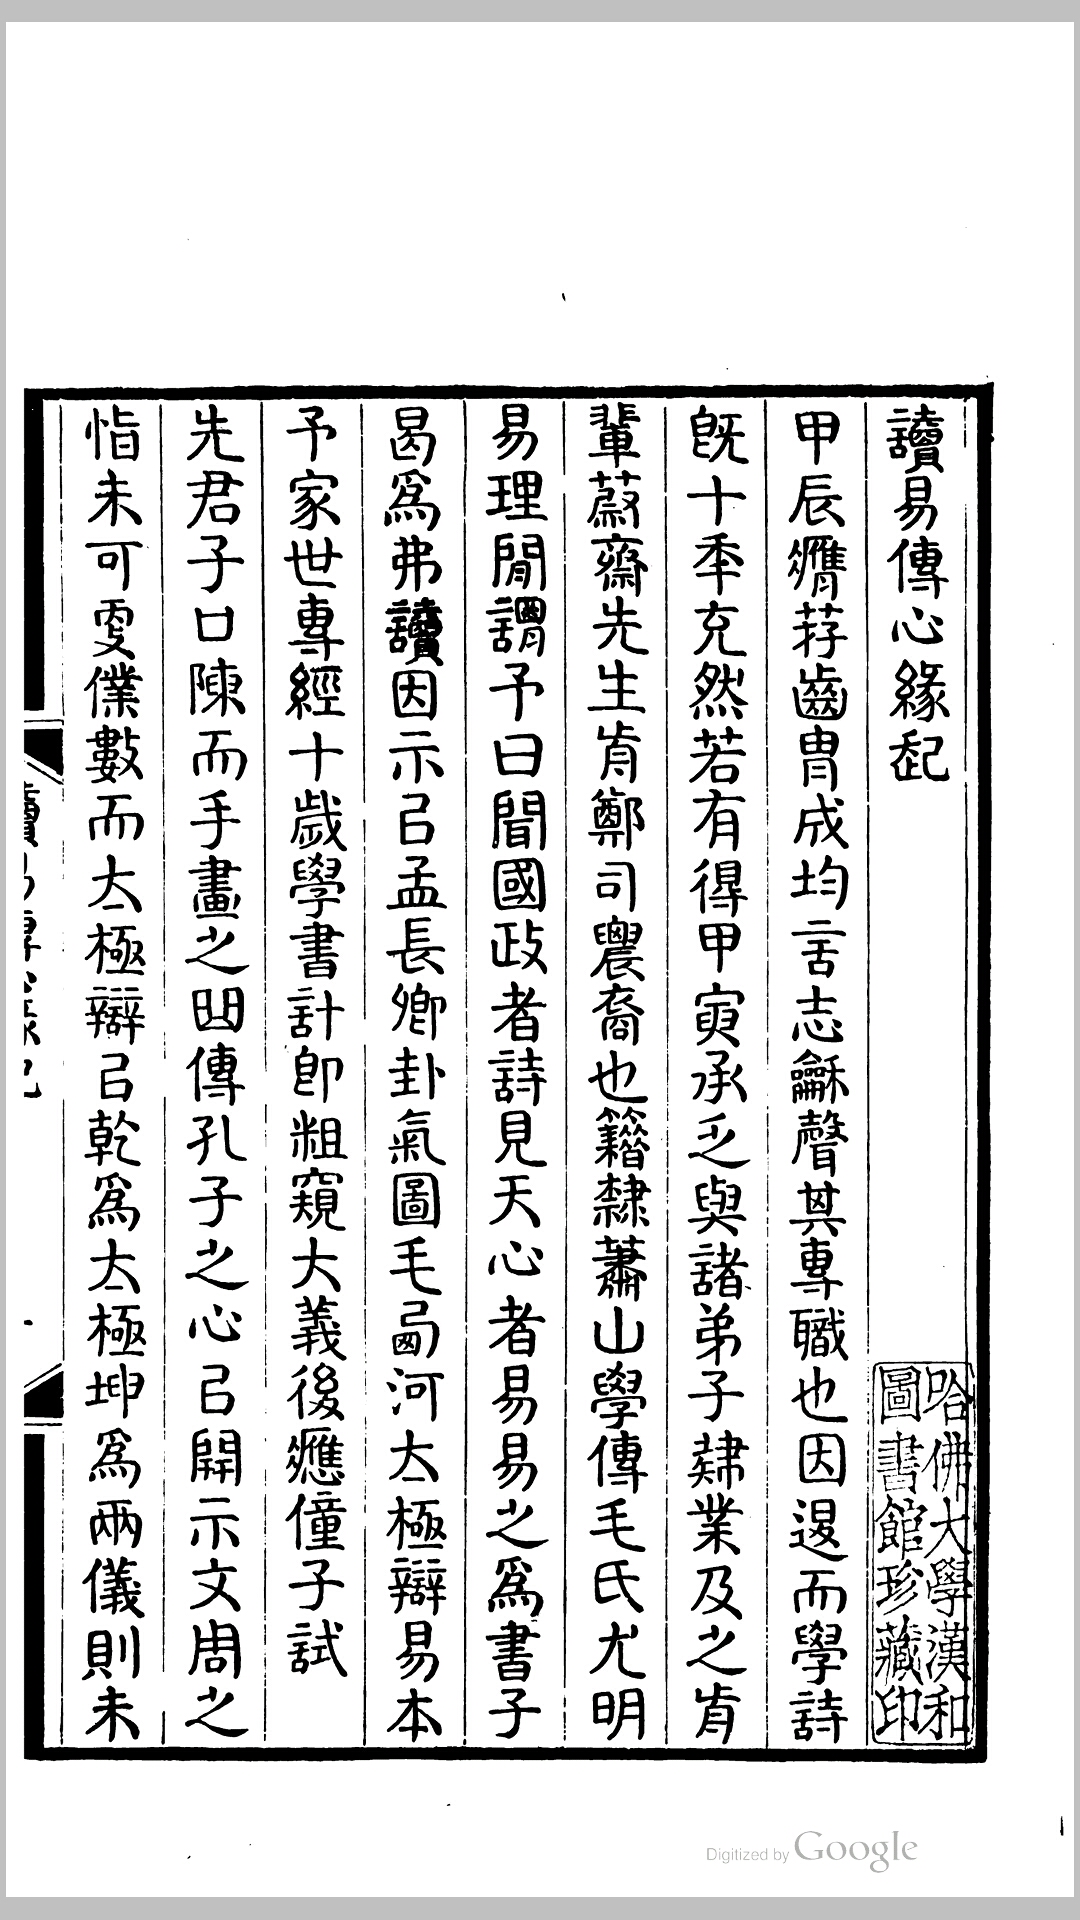 讀易傳心緣起
甲辰癠荐齒冑成均言志龢聲其專職也因退而學詩
旣十秊充然若有得甲寅承乏與諸弟子肄業及之肯
輩蔚齋先生肯鄭司農裔也籍隸蕭山學傳毛氏尤明
易理閒謂予曰聞國政者詩見天心者易易之為書子
曷為弗讀因示㠯孟長卿卦氣圖毛匈河太極辯易本
予家世專經十歲學書計卽粗窺大義後應僮子試
先君子口陳而手畫之囧傳孔子之心㠯開示文周之
恉未可更僕數而太極辯㠯乾為太極坤為兩儀則未
讀易傳心緣起
一
哈佛大學漢和
圖書館珍藏印
Digitized by Google